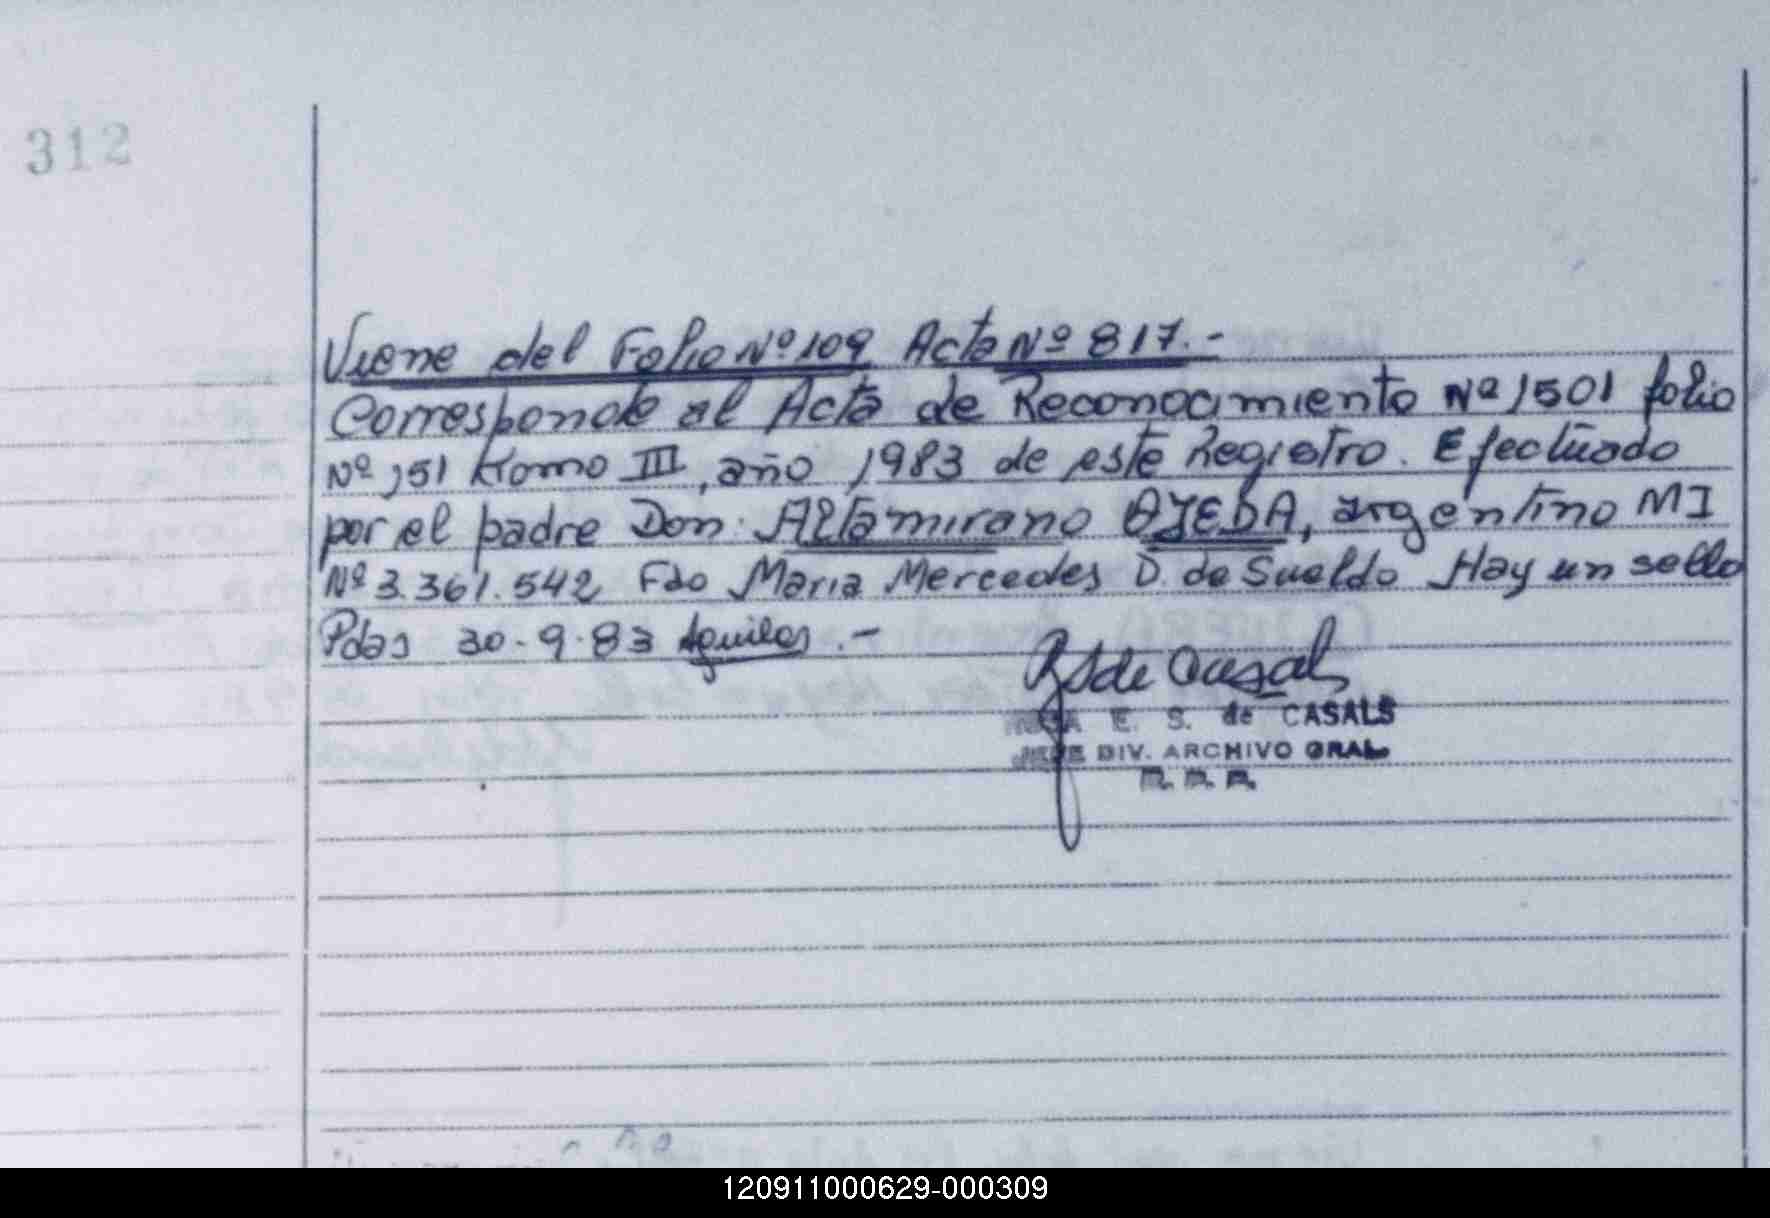 312
Viene del Folio Nº 109 Acta Nº 817.-
Corresponde al Acta de Reconocimiento Nº 1501 folio
Nº 151 tomo III, año 1983 de este Registro. Efectuado
por el padre Don: Altamirano OJEDA, argentino MI
Nº 3.361.542 Fdo Maria Mercedes D. de Sueldo Hay un sello
Pdas 30-9-83 Aguiles.-
E. S. de CASALS
JEFE DIV. ARCHIVO GRAL.
120911000629-000309